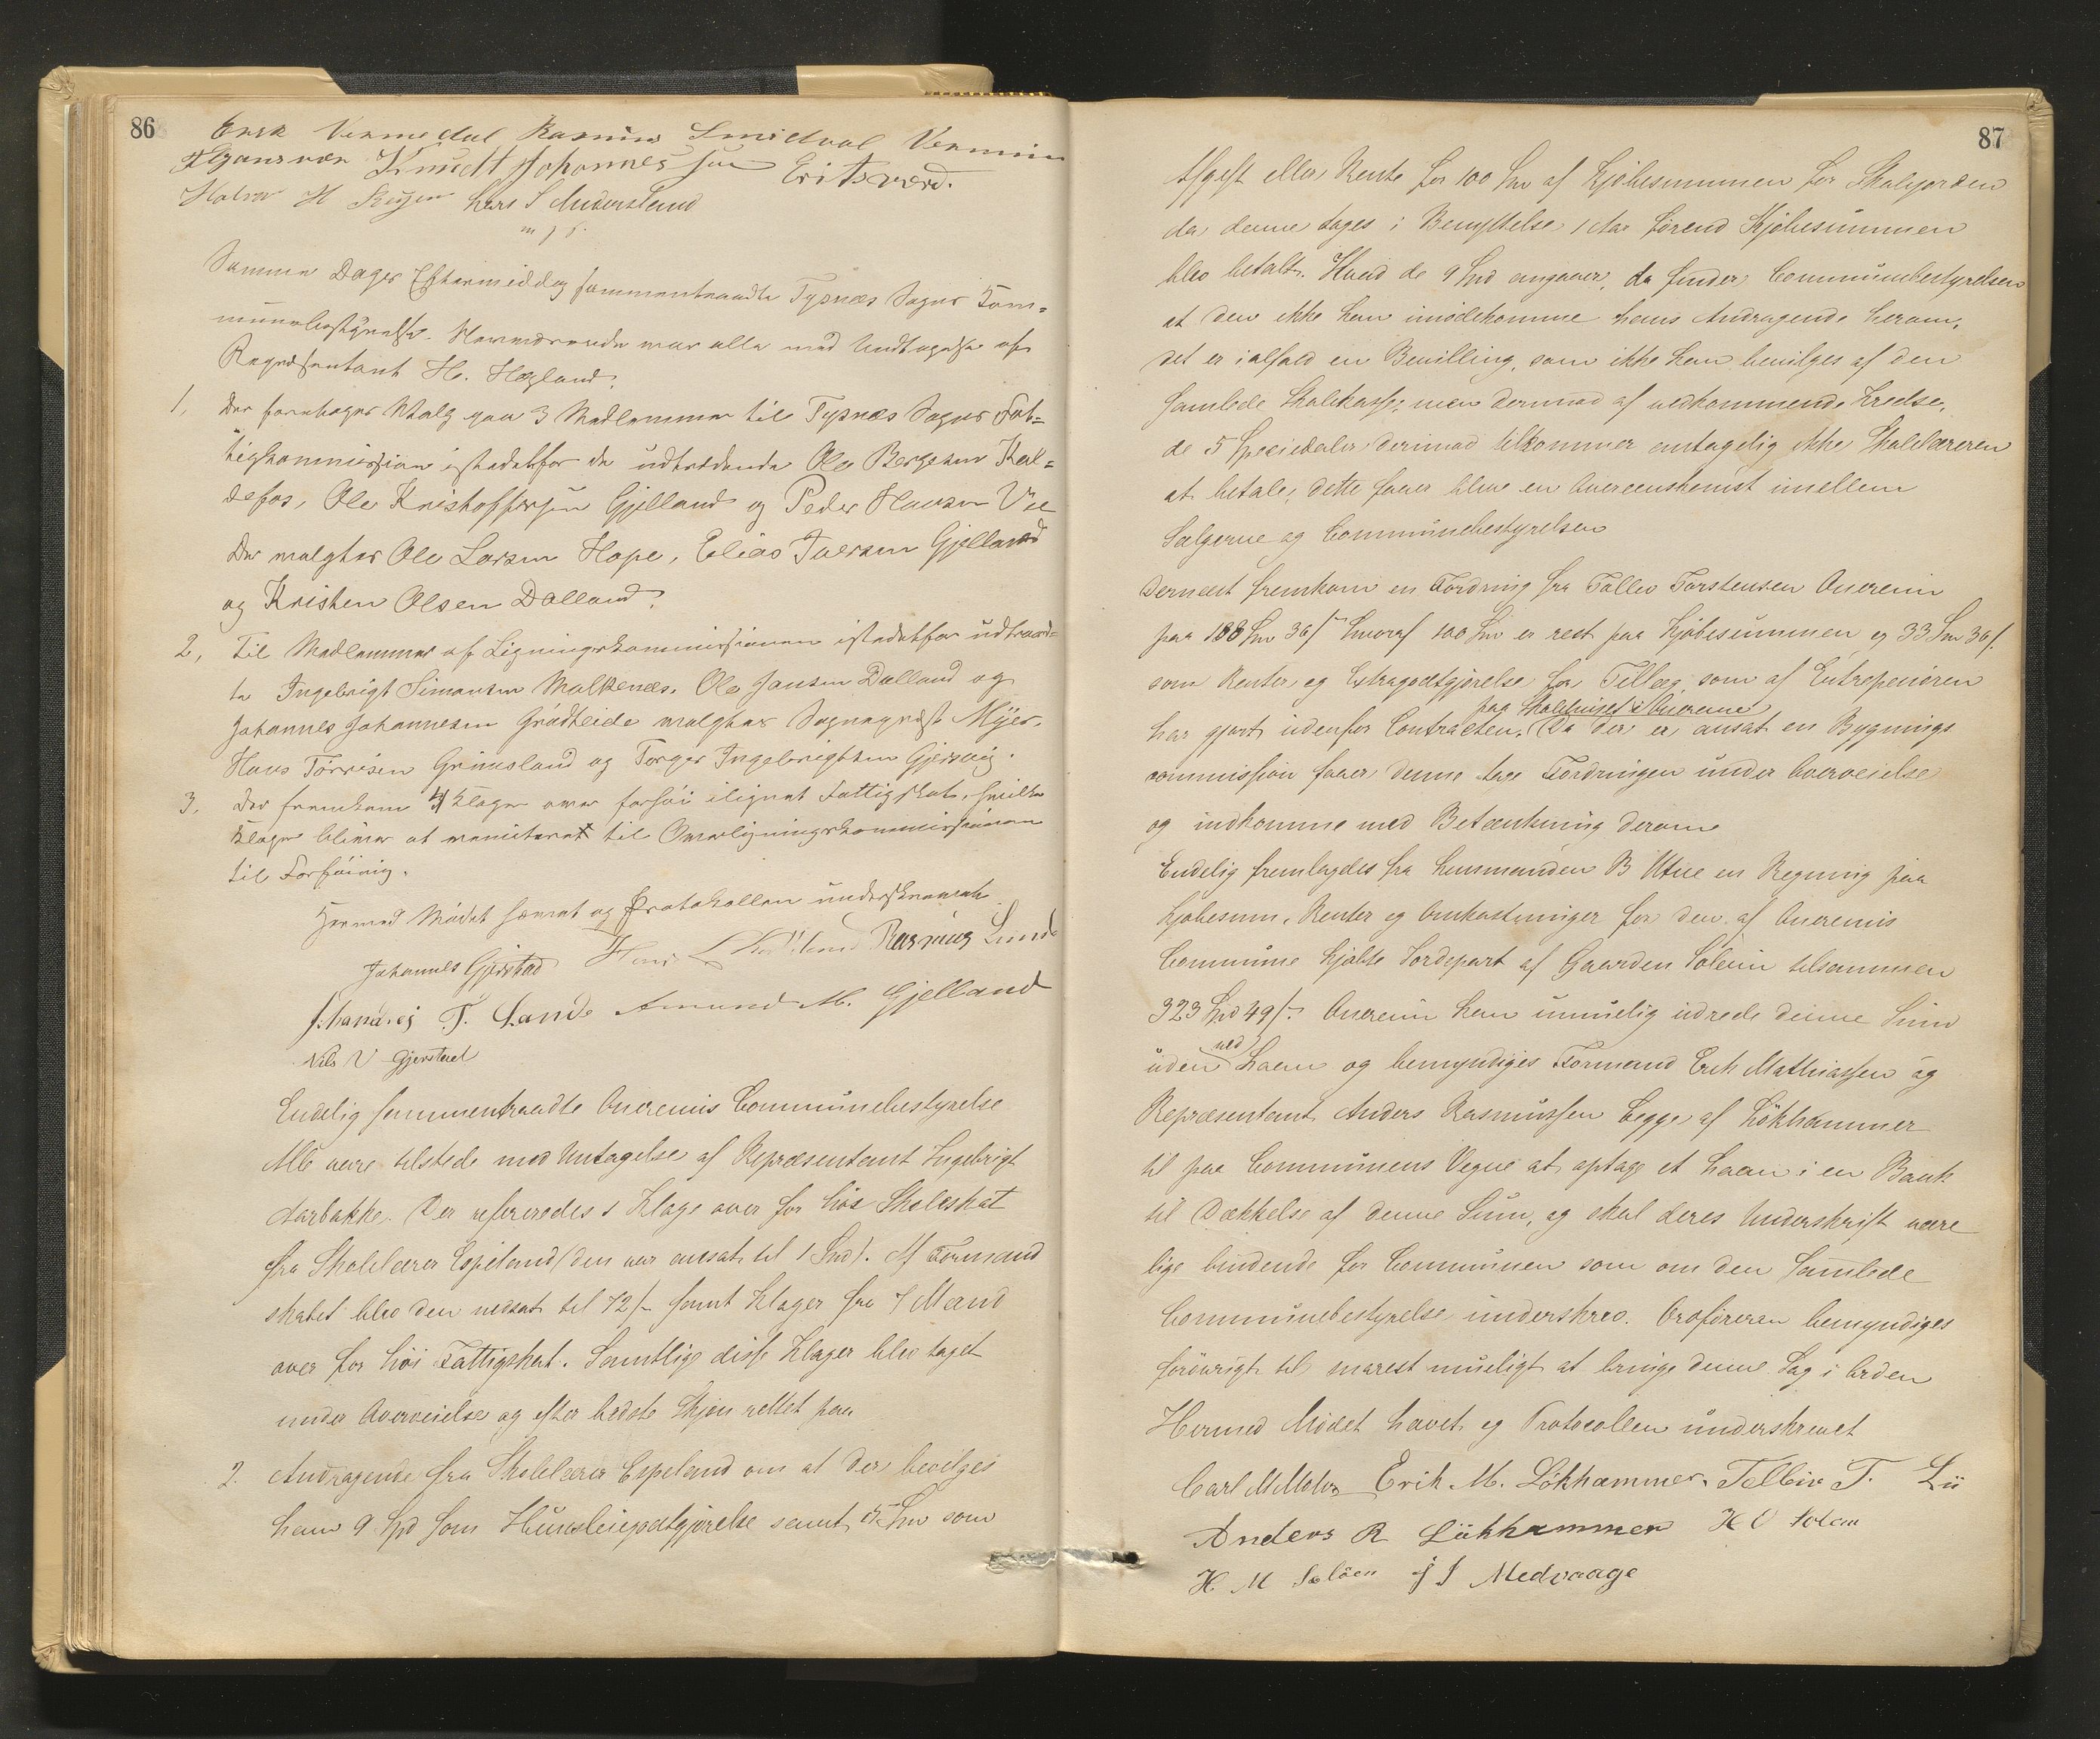 86
Erik Vermedal Rasmus Smidval
Knudt Johannes sen Eritsværd.
H Lars S Anderstand
Samme Dags Eftermiddag sammentraadte Tysnæs Sogns Kom=
munebestyrelse. Nærværende var alle med Undtagelse af
Repræsentant H. Hegland.
1, Der foretages Valg paa 3 Medlemmer til Tysnæs Sogns Fat=
tigkommission istedetfor de udtrædende Ole Bergesen Kal=
defos, Ole Kristoffersen Gjelland og Peder Hansen Vee
Der valgtes Ole Larsen Hope, Elias Iversen Gjelland
og Kristen Olsen Dalland.
2, Til Medlemmer af Ligningskommissionen istedetfor udtraad=
te Ingebrigt Simonsen Malkenæs, Ole Jansen Dalland og
Johannes Johannesen Grødheide valgtes Sogneprest Myer,
Hans Tørrisen Grimsland og Torger Ingebrigtsen Gjersvig.
3, Der fremkom 4 Klager over forhøi ilignet Fattigskat, hvilke
Klager bliver at remitteret til Overligningskommissionen
til Forføining.
Hermed Mødet hævet og Protokollen underskrevet
Johannes Gjerstad Hans L Rasmus Lunde
T. Lande Amund M. Gjelland
Nils V Gjerstad
Endelig sammentraadte Onereims Communebestyrelse
Alle vare tilstede med Untagelse af Repræsentant Ingebrigt
Aarbakke. Der refereredes 1 Klage over for høi Skoleskat
fra Skolelærer Espeland (den var ansat til 1 Spd). Af Formand
skabet blev den nedsat til 72 / samt Klager fra 7 Mænd
over for høi Fattigskat. Samtlige disse Klager blev taget
under Overveielse og efter bedste Skjøn rettet paa
2. Andragende fra Skolelærer Espeland om at der bevilges
ham 9 Spd som Huusleiegodtgjørelse samt 5 Spd som
87
Afgift eller Rente for 100 Spd af Kjøbesummen for Skolejorden
da denne tages i Benyttelse 1 Aar førend Kjøbesummen
blev betalt. Hvad de 9 Spd angaaer, da finder Communebestyrelsen
at den ikke kan imødekomme hans Andragende herom,
det er ialfald en Bevilling, som ikke kan bevilges af den
samlede Skolekasse, men derimod af vedkommende Kredse,
de 5 Speciedaler derimod tilkommer antagelig ikke Skolelæreren
at betale; dette faaer blive en Overeenskomst imellem
Sælgerne og Communebestyrelsen
Dernæst fremkom en Fordring fra Tollev Torstensen Onereim
paa 133 Spd 36 / hvoraf 100 Spd er rest paa Kjøbesummen og 33 Spd 36 /
som Renter og Extragodtgjørelse for Tillæg som af Entrepenøren
paa Skolehuset i Onereim
har gjort udenfor Contracten. Da der er ansat en Bygnings
commission faaer denne tage Fordringen under Overveielse
og indkomme med Betænkning derom
Endelig fremlagdes fra Lensmanden B Utne en Regning paa
Kjøbesum, Renter og Omkostninger for den af Onereims
Commune kjøbte Jordepart af Gaarden Søleim tilsammen
323 Spd 49 /. Onereim kan umuelig udrede denne Sum
ved
uden Laan og bemyndiges Formand Erik Mathiassen og
Repræsentant Anders Rasmussen begge af Løkhammer
til paa Communens Vegne at optage et Laan i en Bank
til Dækkelse af denne Sum, og skal deres Underskrift være
lige bindende for Communen som om den samlede
Communebestyrelse underskrev. Ordføreren bemyndiges
forøvrigt til snarest mueligt at bringe denne Sag i Orden
Hermed Mødet hævet og Protocollen underskrevet
Carl M Erik M. Løkhammer Tolleiv T. Lii
Anders R Lükhammer H O
H M J J Medvaage